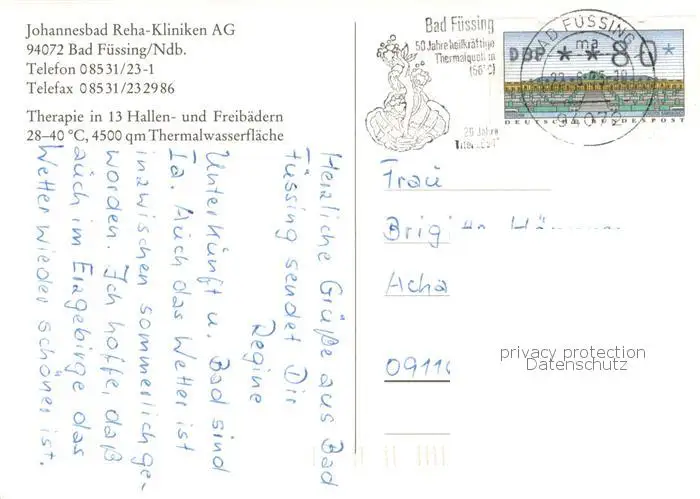 Johannesbad Reha-Kliniken AG
94072 Bad Füssing/Ndb.
Telefon 08531/23-1
Telefax 08531/232986
Therapie in 13 Hallen- und Freibädern
28–40 °C, 4500 qm Thermalwasserfläche
Herzliche Grüße aus Bad
Füssing sendet Dir
Regine
Unterkunft u. Bad sind
Ia. Auch das Wetter ist
inzwischen sommerlich ge-
worden. Ich hoffe, daß
auch im Erzgebirge das
Wetter wieder schöner ist.
Bad Füssing
50 Jahre heilkräftige
Thermalquellen
(56°C)
25 Jahre
BAD FÜSSING
ma
94072
DBP * * 80 *
DEUTSCHE BUNDESPOST
Frau
Brigitte
Acha
0911
privacy protection
Datenschutz